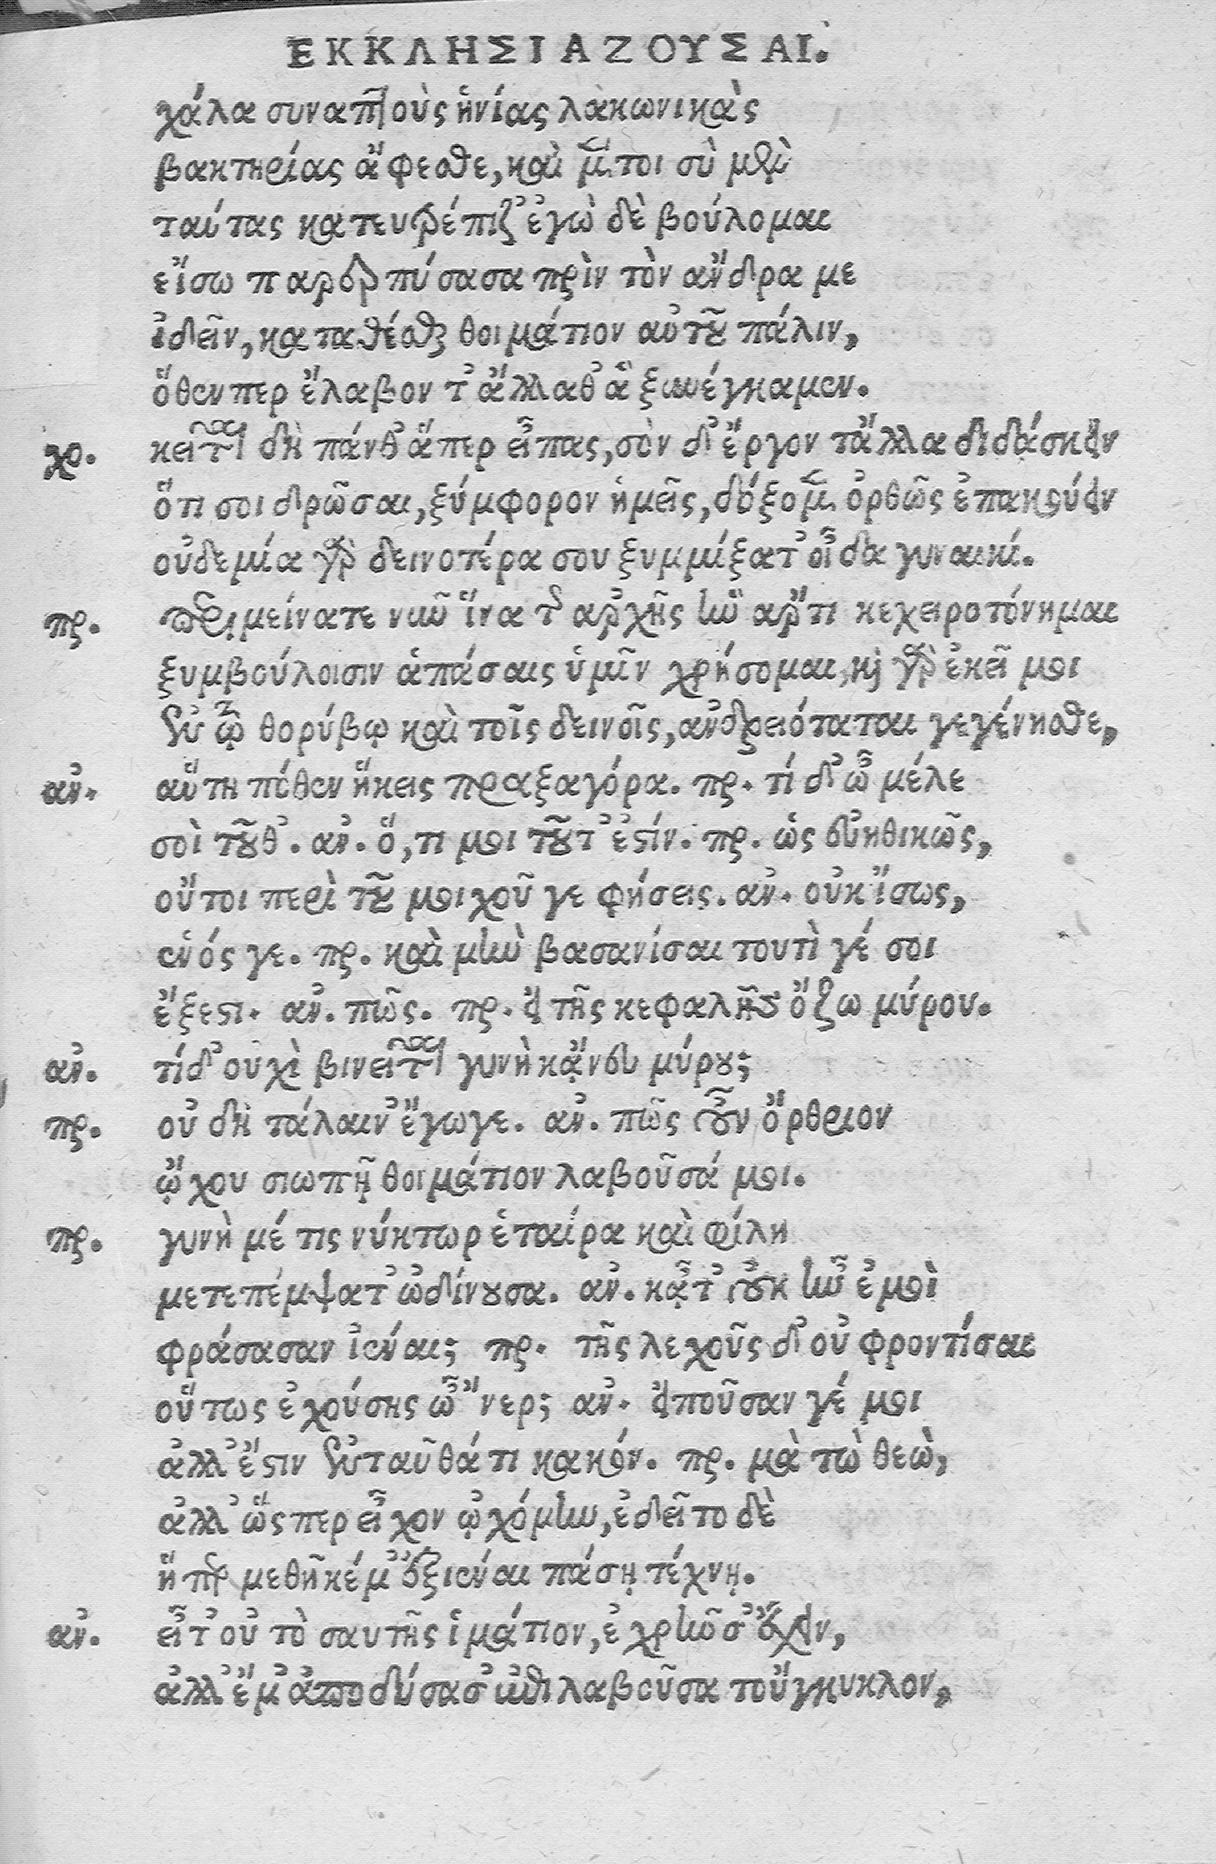 ΕΚΚΛΗΣΙΑΖΟΥΣΑΙ.
χάλα συναπτοὺς ἡνίας λακωνικὰς
βακτηρίας ἄφεσθε, καὶ μέντοι σὺ μὲν
ταύτας κατευτρέπιζ᾽ ἐγὼ δὲ βούλομαι
εἴσω παρερπύσασα πρὶν τὸν ἄνδρα με
ἰδεῖν, καταθέσθαι θοιμάτιον αὐτοῦ πάλιν,
ὅθενπερ ἔλαβον τ᾽ ἄλλαθ᾽ ἃ ξηνέγκαμεν.
χο. κεῖται δὴ πάνθ᾽ ἅπερ εἶπας, σὸν δ᾽ ἔργον τἄλλα διδάσκειν
ὅτι σοι δρῶσαι, ξύμφορον ἡμεῖς, δόξομεν ὀρθῶς ἐπακούειν
οὐδεμία γὰρ δεινοτέρα σου ξυμμίξατ᾽ οἶδα γυναικί.
πρ. περιμείνατε νῦν ἵνα τῆς ἀρχῆς ἣν ἄρτι κεχειροτόνημαι
ξυμβούλοισιν ἁπάσαις ὑμῖν χρήσομαι, καὶ γὰρ ἐκεῖ μοι
ἐν τῷ θορύβῳ καὶ τοῖς δεινοῖς, ἀνδρειόταται γεγένησθε,
αν. αὕτη πόθεν ἥκεις πραξαγόρα. πρ. τί δ᾽ ὦ μέλε
σοὶ τοῦθ᾽. αν. ὅ, τι μοι τοῦτ᾽ ἐστίν. πρ. ὡς εὐηθικῶς,
οὔτοι περὶ τοῦ μοιχοῦ γε φήσεις. αν. οὐκ ἴσως,
ἑνός γε. πρ. καὶ μὴν βασανίσαι τουτὶ γέ σοι
ἔξεστι. αν. πῶς. πρ. εἰ τῆς κεφαλῆς ὄζω μύρου.
αν. τίδ᾽ οὐχὶ βινεῖται γυνὴ κᾄνευ μύρου;
πρ. οὐ δὴ τάλαιν᾽ ἔγωγε. αν. πῶς οὖν ὄρθριον
ᾤχου σιωπῇ θοιμάτιον λαβοῦσά μοι.
πρ. γυνὴ μέ τις νύκτωρ ἑταίρα καὶ φίλη
μετεπέμψατ᾽ ὠδίνουσα. αν. κᾆτ᾽ οὐκ ἦν ἐμοὶ
φράσασαν ἰέναι; πρ. τῆς λεχοῦς δ᾽ οὐ φροντίσαι
οὕτως ἐχούσης ὦ ἄνερ; αν. εἰποῦσαν γέ μοι
ἀλλ᾽ ἔστιν ἐνταῦθά τι κακόν. πρ. μὰ τὼ θεὼ,
ἀλλ᾽ ὥσπερ εἶχον ᾠχόμην, ἐδεῖτο δὲ
ἥπερ μεθῆκέ μ᾽ ἐξιέναι πάσῃ τέχνῃ.
αν. εἶτ᾽ οὐ τὸ σαυτῆς ἱμάτιον, ἐχρῆν σ᾽ ἔχειν,
ἀλλ᾽ ἔμ᾽ ἀποδύσασ᾽ ἐπιλαβοῦσα τοὔγκυκλον,